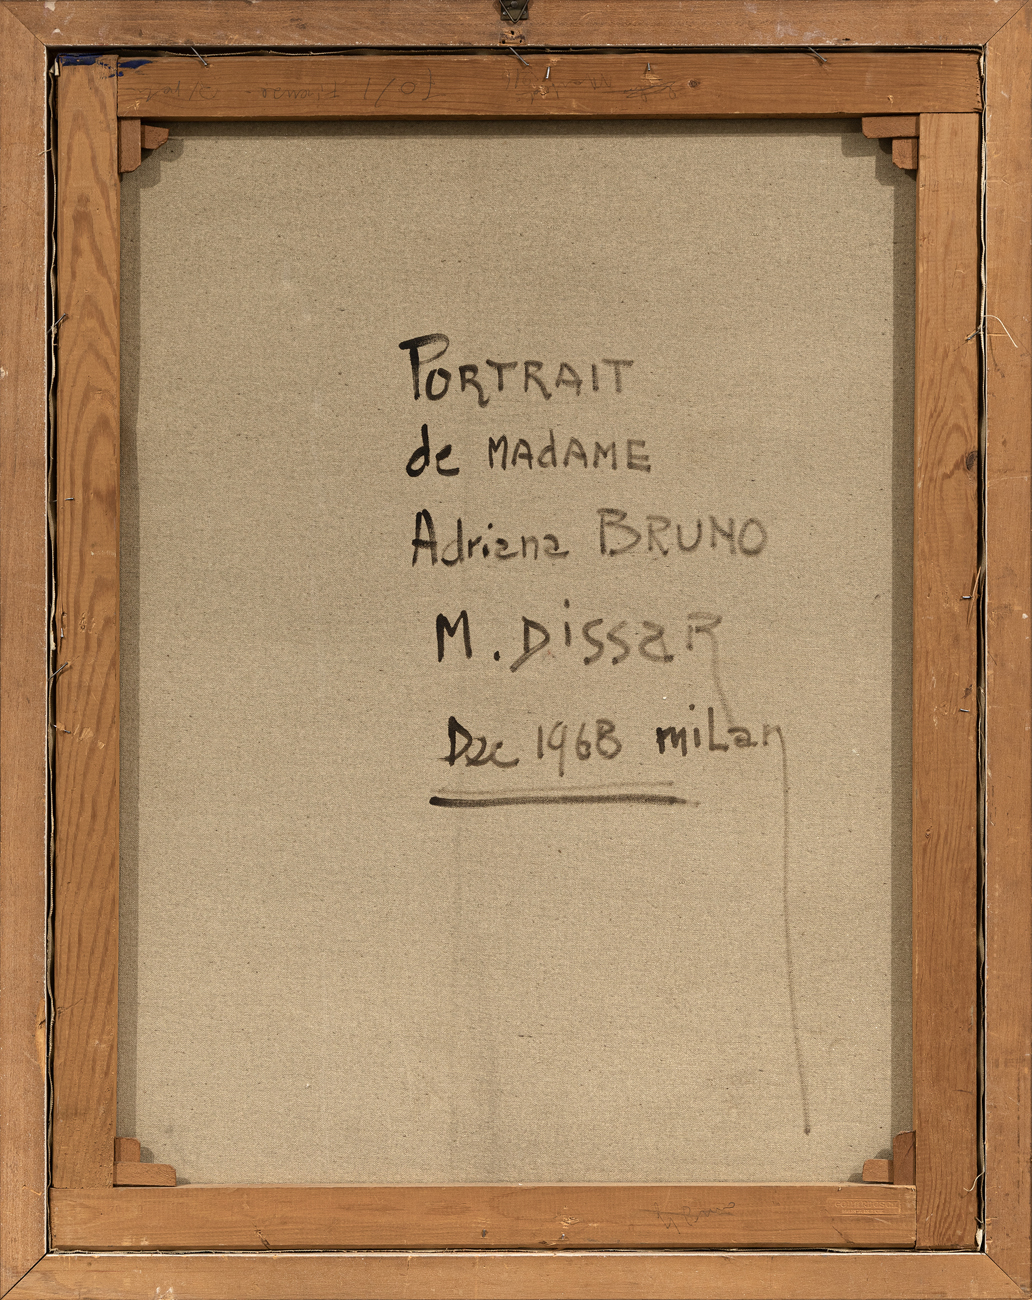 PORTRAIT
de MAdAME
Adriana BRUNO
M. DissaR
Dec 1968 miLan